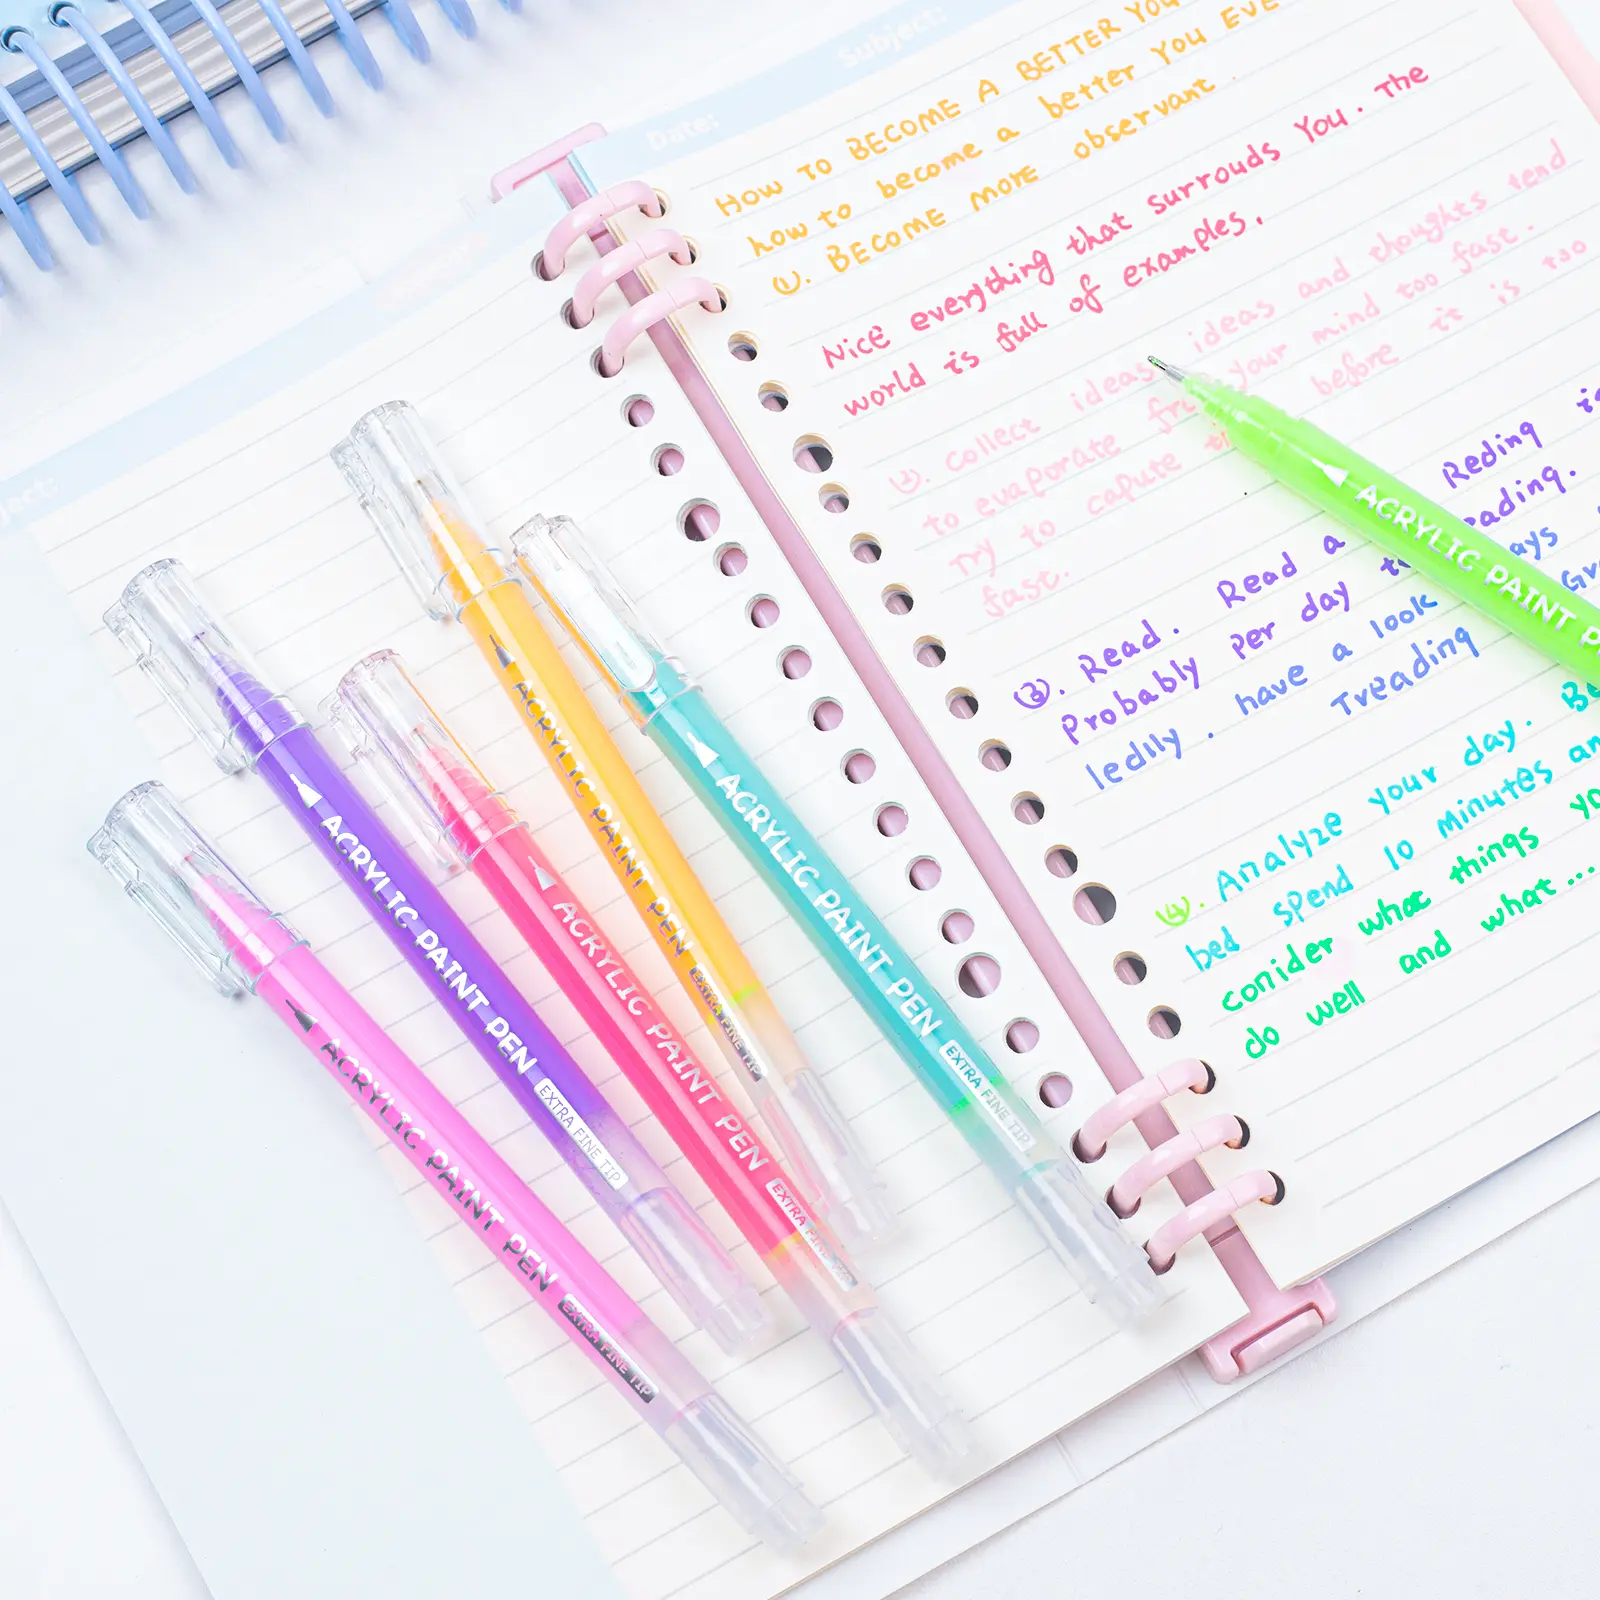 Subject:
Date:
HOW TO BECOME A BETTER YOU
how to become a better YOU EVE
①. BECOME MORE observant.
Nice everything that surrouds YOU. The
world is full of examples,
②. collect ideas ideas and thoughts tend
to evaporate your mind too fast.
Try to capute before it is too
fast.
③. Read. Read a Reding is
Probably per day eading.
ledlly. have a look ays
Treading Gr
④. Analyze your day. Be
bed spend 10 Minutes an
conider what things yo
do well and what...
ACRYLIC PAINT P
ACRYLIC PAINT PEN EXTRA FINE TIP
ACRYLIC PAINT PEN EXTRA FINE TIP
ACRYLIC PAINT PEN EXTRA FINE TIP
ACRYLIC PAINT PEN EXTRA FINE TIP
ACRYLIC PAINT PEN EXTRA FINE TIP
ject: